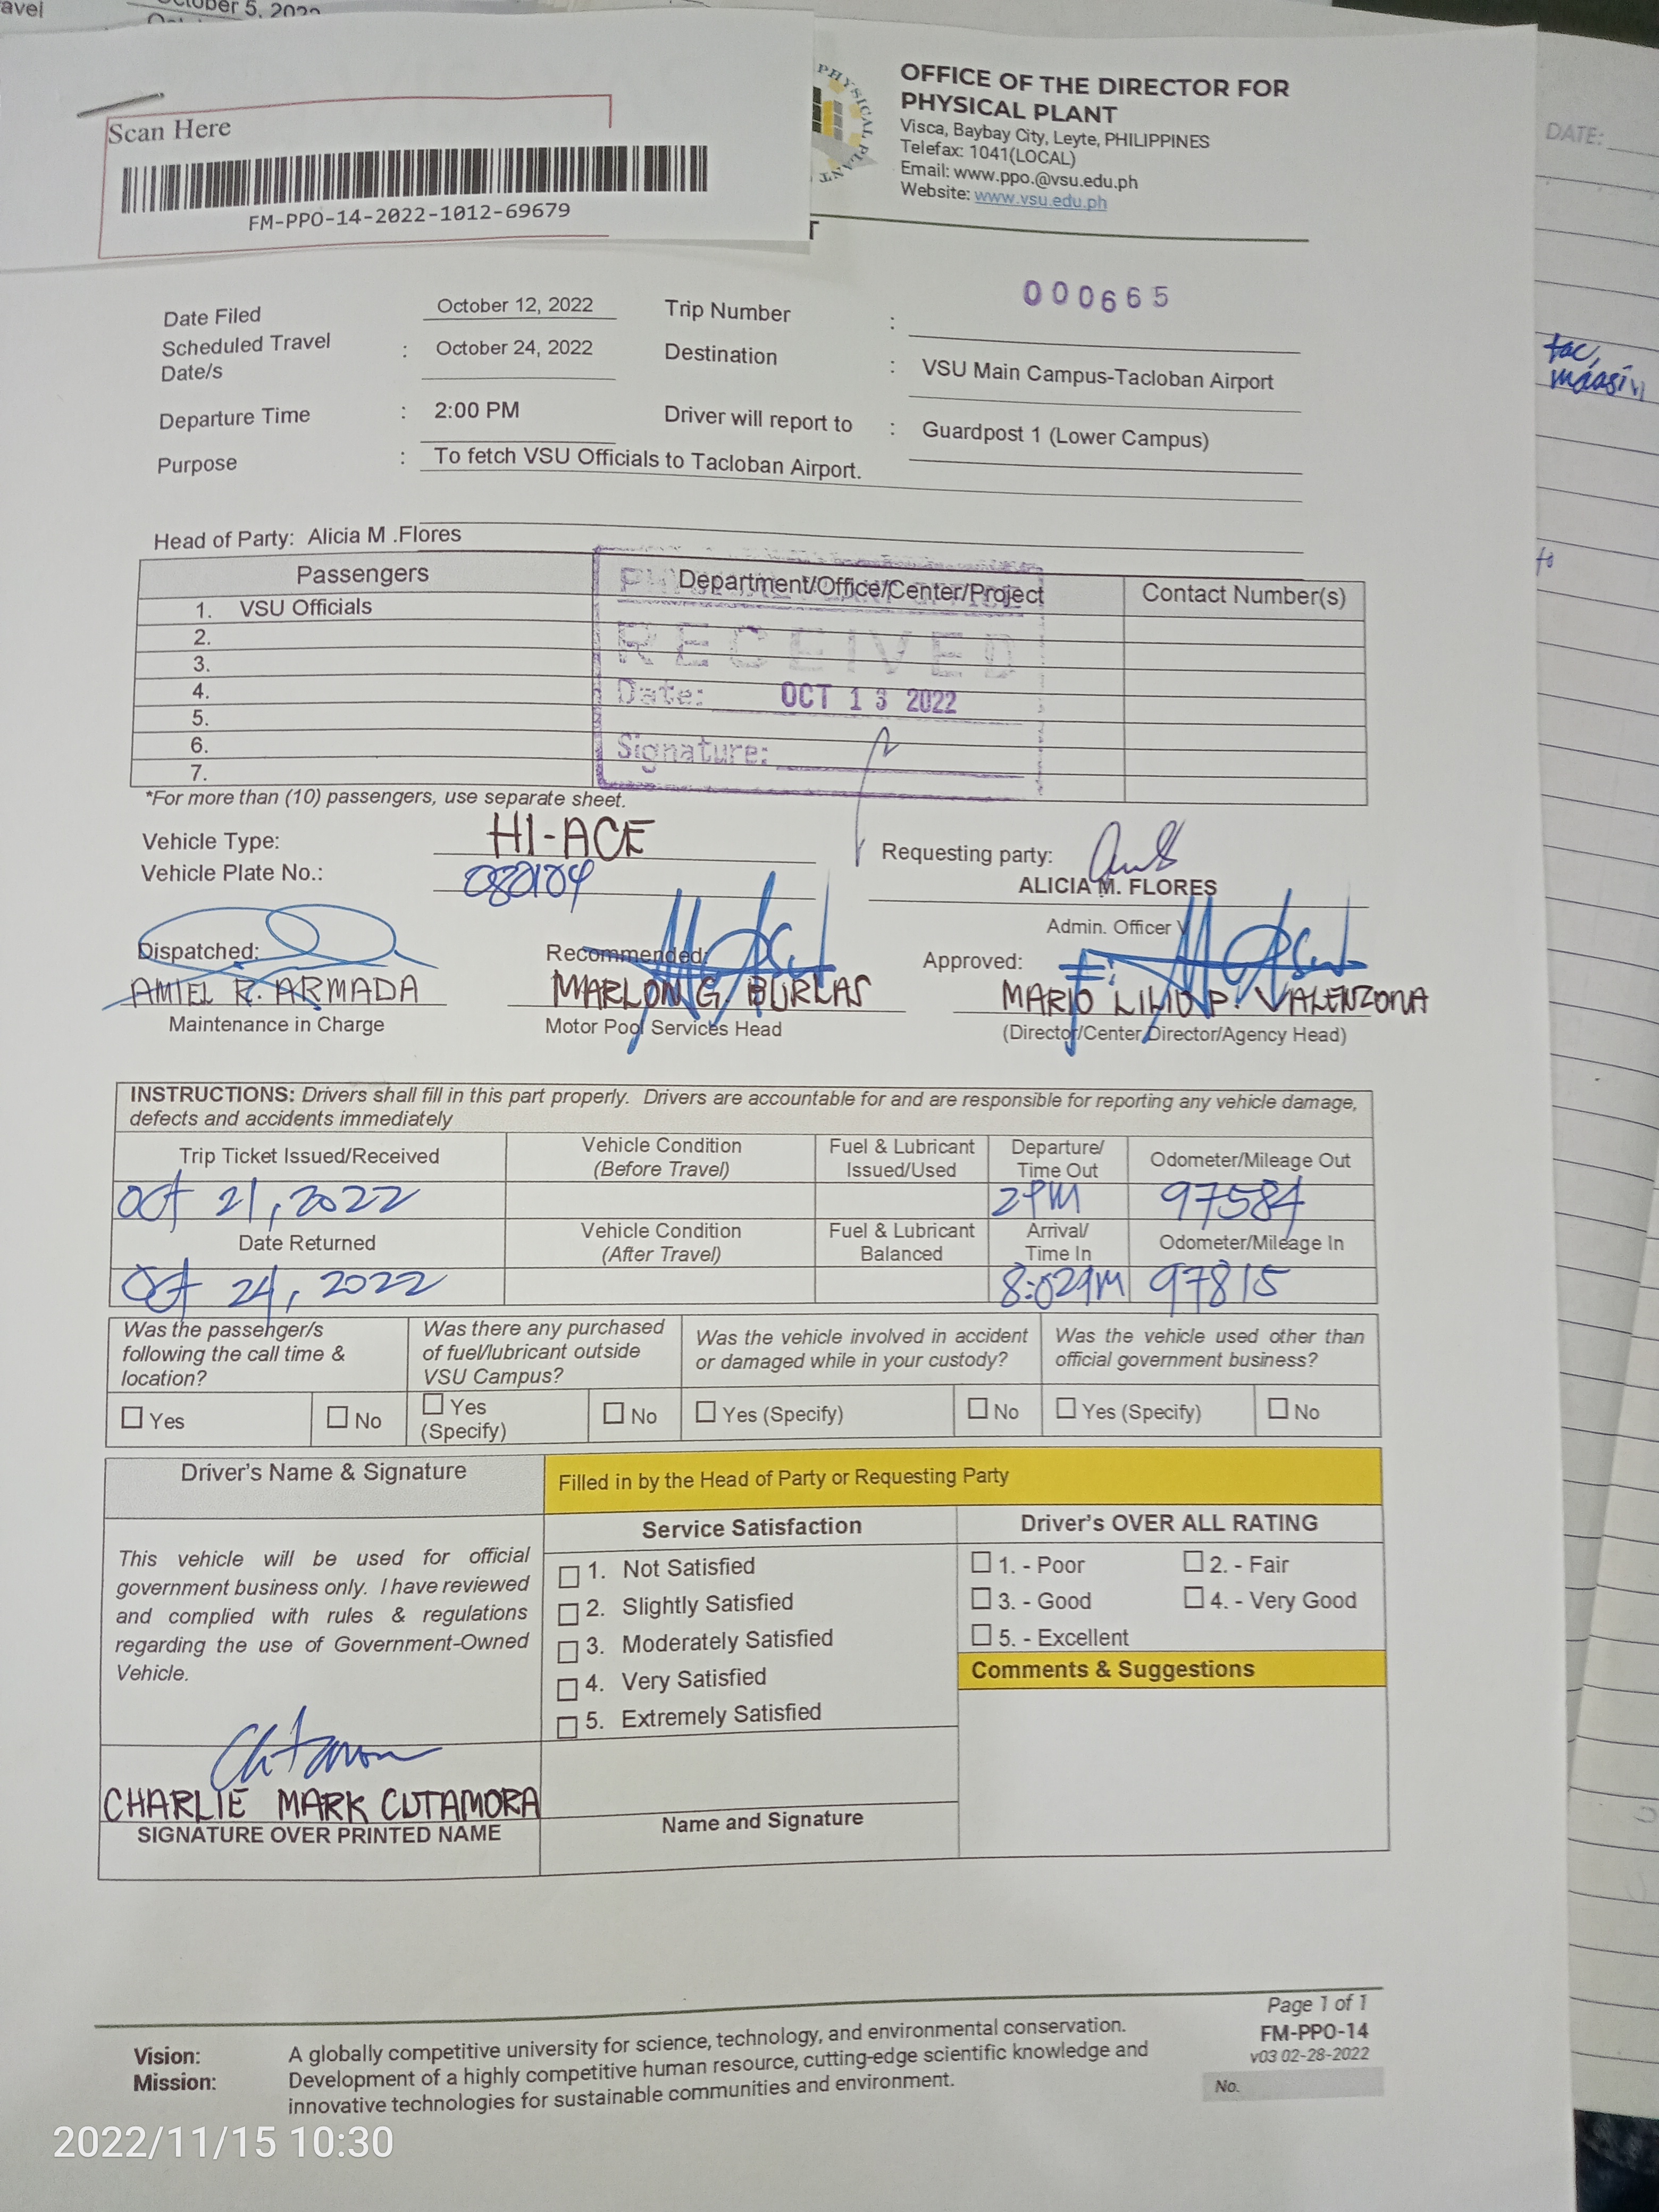 avel
October 5, 2022
Scan Here
FM-PPO-14-2022-1012-69679
PHYSICAL PLANT
OFFICE OF THE DIRECTOR FOR
PHYSICAL PLANT
Visca, Baybay City, Leyte, PHILIPPINES
Telefax: 1041(LOCAL)
Email: www.ppo.@vsu.edu.ph
Website: www.vsu.edu.ph
T
DATE:
000665
Date Filed October 12, 2022 Trip Number :
Scheduled Travel Date/s : October 24, 2022 Destination : VSU Main Campus-Tacloban Airport
Departure Time : 2:00 PM Driver will report to : Guardpost 1 (Lower Campus)
Purpose : To fetch VSU Officials to Tacloban Airport.
tac,
maasin
Head of Party: Alicia M .Flores
Passengers Department/Office/Center/Project Contact Number(s)
1. VSU Officials
2.
3.
4.
5.
6.
7.
RECEIVED
Date: OCT 13 2022
Signature:
*For more than (10) passengers, use separate sheet.
Vehicle Type: HI-ACE
Vehicle Plate No.:
Requesting party:
ALICIA M. FLORES
Admin. Officer V
Dispatched: Recommended: Approved:
AMIEL R. ARMADA MARLON G. BURLAS MARIO LILIO P. VALENZONA
Maintenance in Charge Motor Pool Services Head (Director/Center Director/Agency Head)
INSTRUCTIONS: Drivers shall fill in this part properly. Drivers are accountable for and are responsible for reporting any vehicle damage,
defects and accidents immediately
Trip Ticket Issued/Received Vehicle Condition (Before Travel) Fuel & Lubricant Issued/Used Departure/ Time Out Odometer/Mileage Out
Oct 21, 2022 2PM 97584
Date Returned Vehicle Condition (After Travel) Fuel & Lubricant Balanced Arrival/ Time In Odometer/Mileage In
Oct 24, 2022 97815
Was the passenger/s following the call time & location? Was there any purchased of fuel/lubricant outside VSU Campus? Was the vehicle involved in accident or damaged while in your custody? Was the vehicle used other than official government business?
Yes No Yes (Specify) No Yes (Specify) No Yes (Specify) No
Driver's Name & Signature
Filled in by the Head of Party or Requesting Party
This vehicle will be used for official
government business only. I have reviewed
and complied with rules & regulations
regarding the use of Government-Owned
Vehicle.
CHARLIE MARK CUTAMORA
SIGNATURE OVER PRINTED NAME
Service Satisfaction
1. Not Satisfied
2. Slightly Satisfied
3. Moderately Satisfied
4. Very Satisfied
5. Extremely Satisfied
Name and Signature
Driver's OVER ALL RATING
1. - Poor 2. - Fair
3. - Good 4. - Very Good
5. - Excellent
Comments & Suggestions
Page 1 of 1
FM-PPO-14
v03 02-28-2022
No.
Vision: A globally competitive university for science, technology, and environmental conservation.
Mission: Development of a highly competitive human resource, cutting-edge scientific knowledge and
innovative technologies for sustainable communities and environment.
2022/11/15 10:30